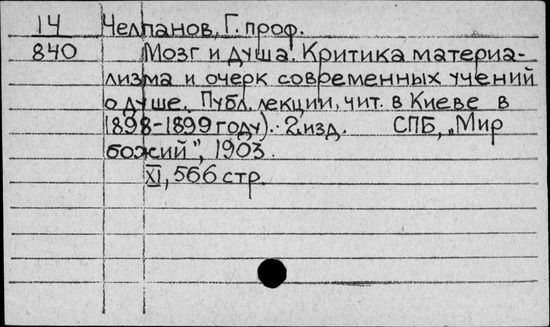 14 Челпанов, Г. проф.
840 Мозг и душа. Критика материа-
лизма и очерк современных учений
о душе. Публ. лекции, чит. в Киеве в
1898-1899 году). 2 изд. СПБ, „Мир
божий", 1903.
XI, 566 стр.